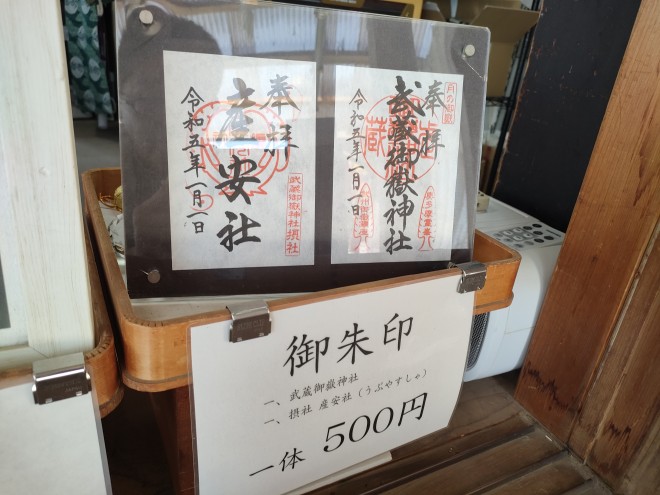 奉拝
武蔵御嶽神社
令和五年一月一日
奉拝
産安社
令和五年一月一日
武蔵御嶽神社摂社
御朱印
一、武蔵御嶽神社
一、摂社 産安社(うぶやすしゃ)
一体 500円